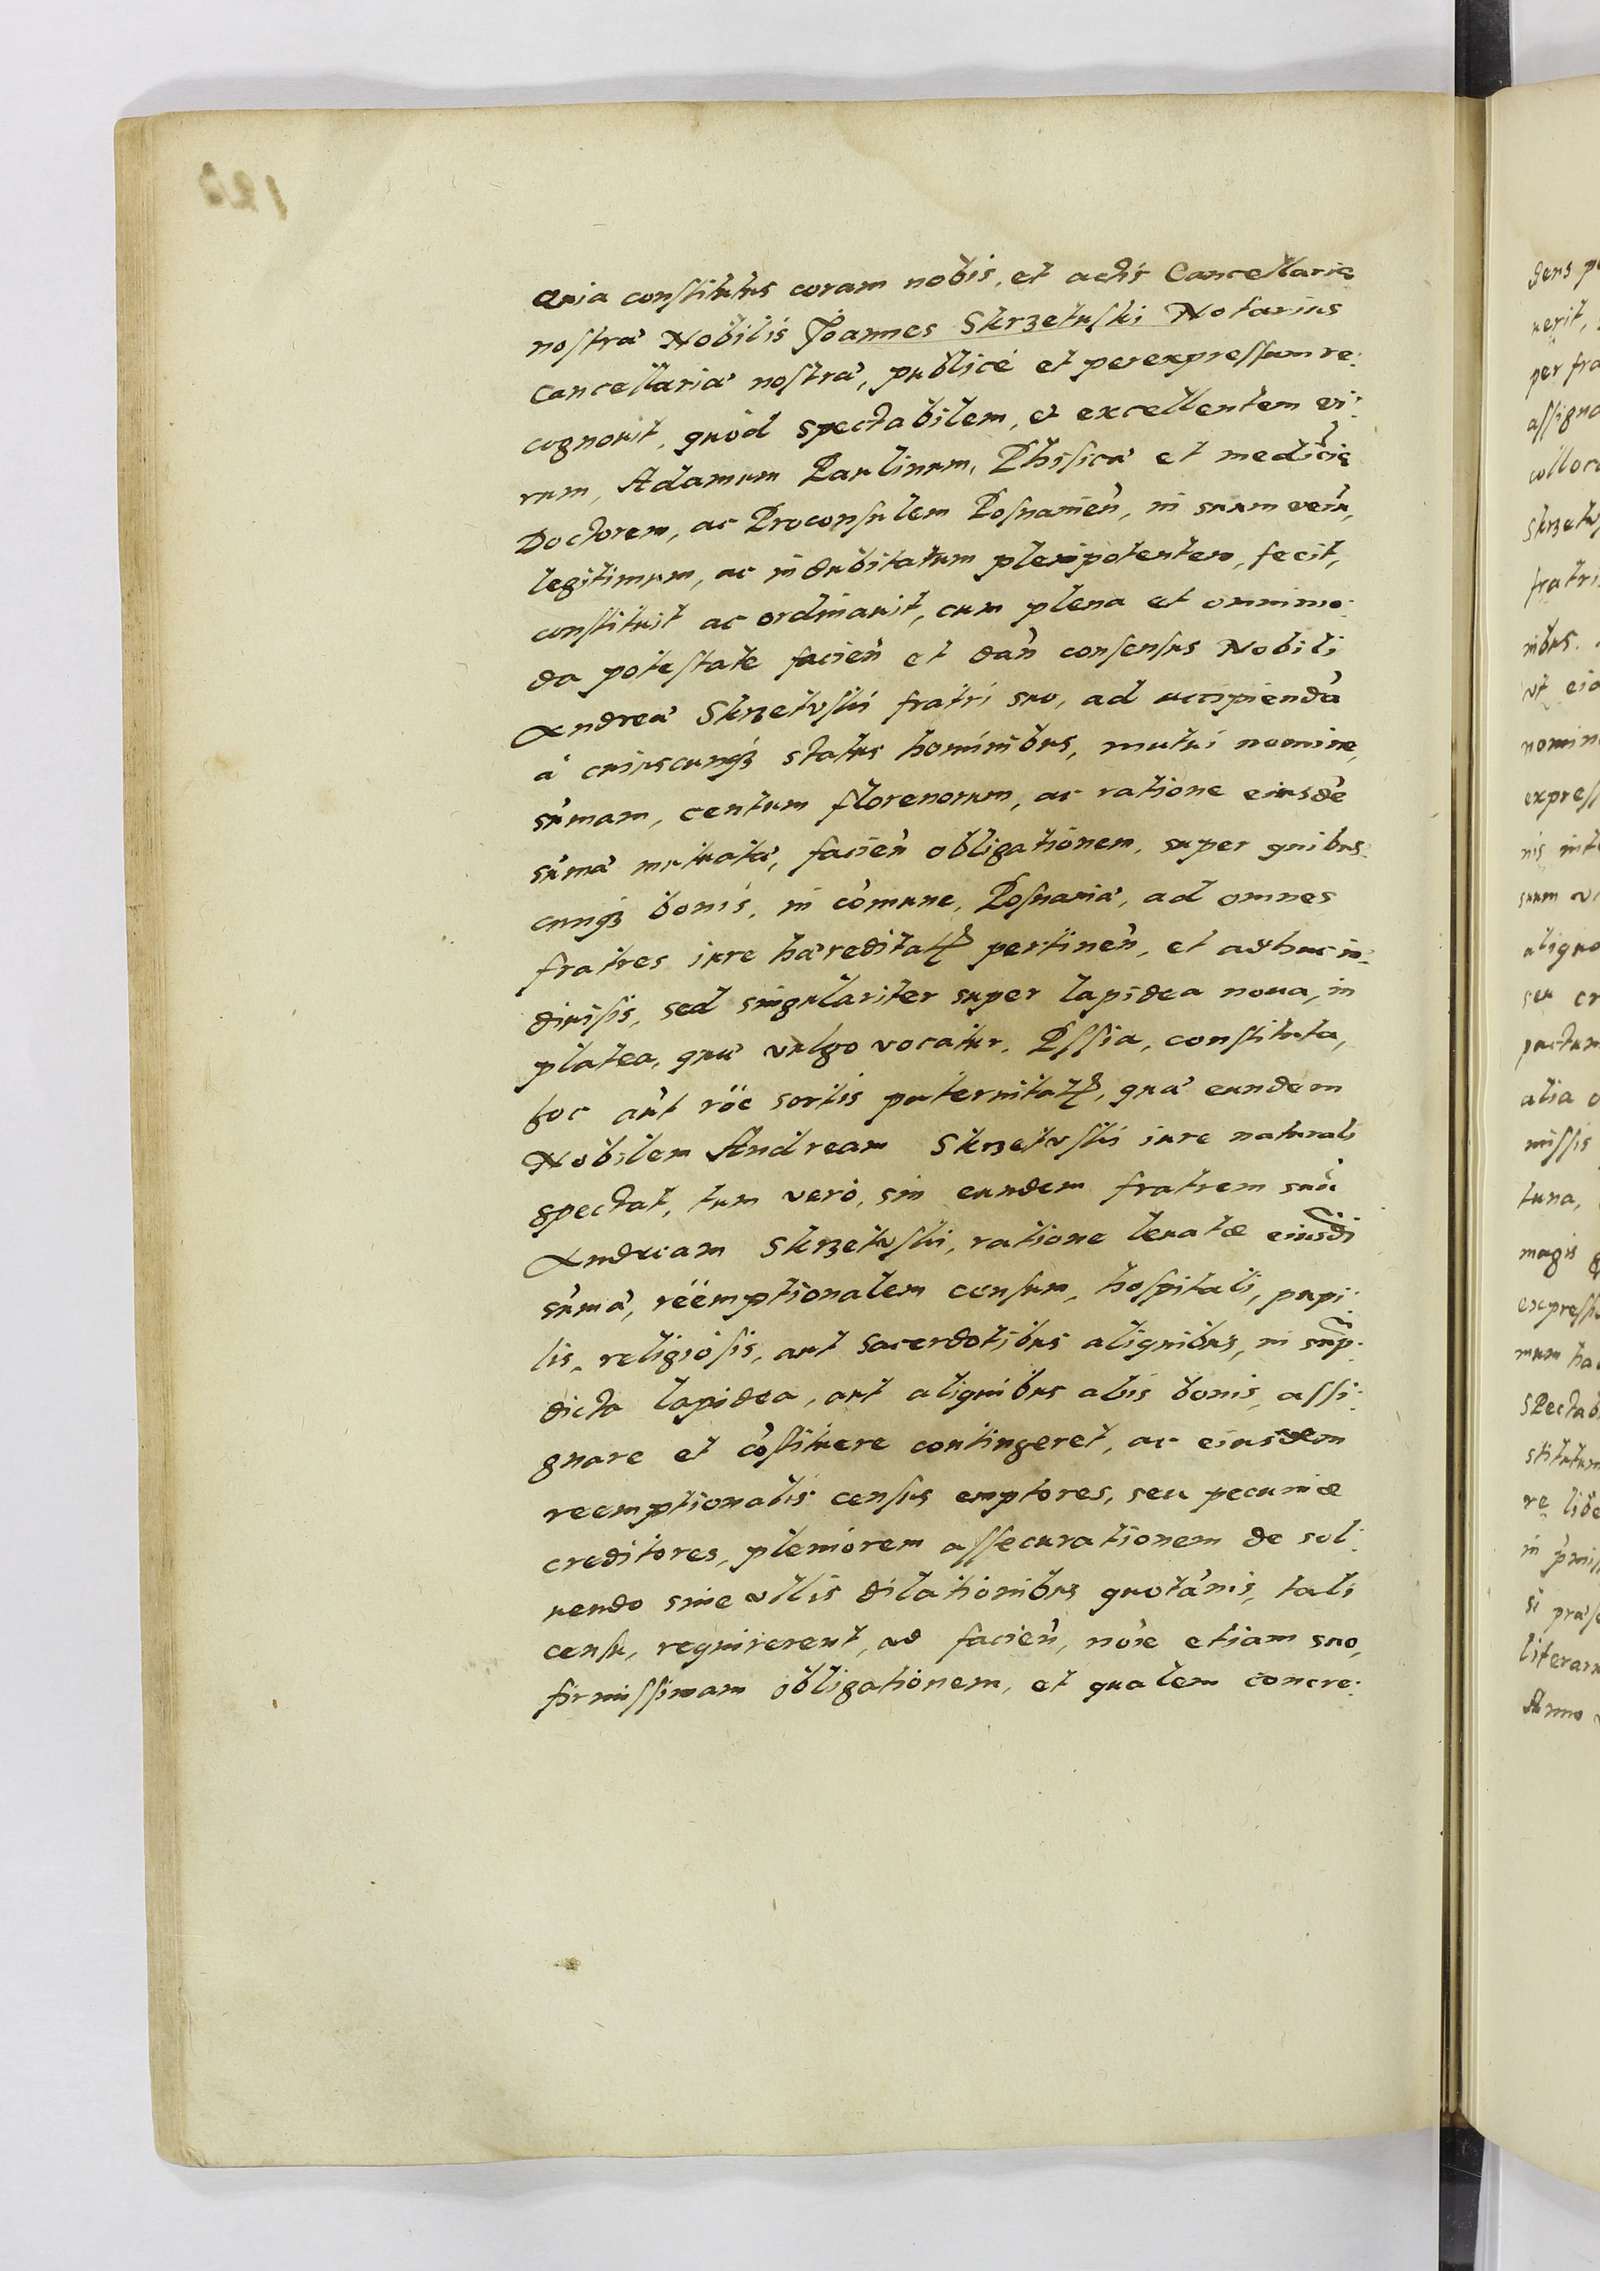 Quia constitutus coram nobis, et actis Cancellariæ
nostræ Nobilis Joannes Skrzetuski Notarius
Cancellariæ nostræ, publicè et per expressum re:
cognouit, quòd spectabilem, et excellentem vi:
rum, Adamum Paulinum, Phisicæ et medicie
Doctorem, ac Proconsulem Posnanien̄, in suum verū,
legitimum, ac indubitatum plenipotentem, fecit,
constituit ac ordinauit, cum plena et omnimo:
da potestate facien̄ et dan̄ consensus Nobili
Andreæ Skrzetvski fratri suo, ad accipiendā
à cuiuscunqȝ status hominibus, mutui nomine,
sūmam, centum florenorum, ac ratione eiusdē
sūmæ mutuatæ, facien̄ obligationem, super quibus:
cunqȝ bonis, in cōmune, Posnaniæ, ad omnes
fratres iure hæreditatis pertinen̄, et adhuc in:
diuisis, sed singulariter super lapidea noua, in
platea, quæ vulgo vocatur, Pssia, constituta,
hoc aūt rōe sortis paternitatis, quæ eundem
Nobilem Andream Skrzetvski iure naturali
spectat, tum verò, sin eundem fratrem suū
Andream Skrzetuski, ratione leuatæ eiusdē
sūmæ, rëemptionalem censum, hospitali, pupi:
lis, religiosis, aut sacerdotibus aliquibus, in sup:
dicta lapidea, aut aliquibus aliis bonis, assi:
gnare et cōstituere contingeret, ac eiusdem
reemptionalis census emptores, seu pecuniæ
creditores, pleniorem assecurationem de sol:
uendo sine vllis dilationibus quotānis, tali
censu, requirerent, ad facien̄, nōie etiam suo,
firmissimam obligationem, et qualem concre: